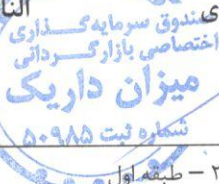 صندوق سرمایه گـــذاری
اختصاصی بازارگـــردانی
میزان داریک
شماره ثبت ۵۰۹۸۵
۲ – طبقه اول